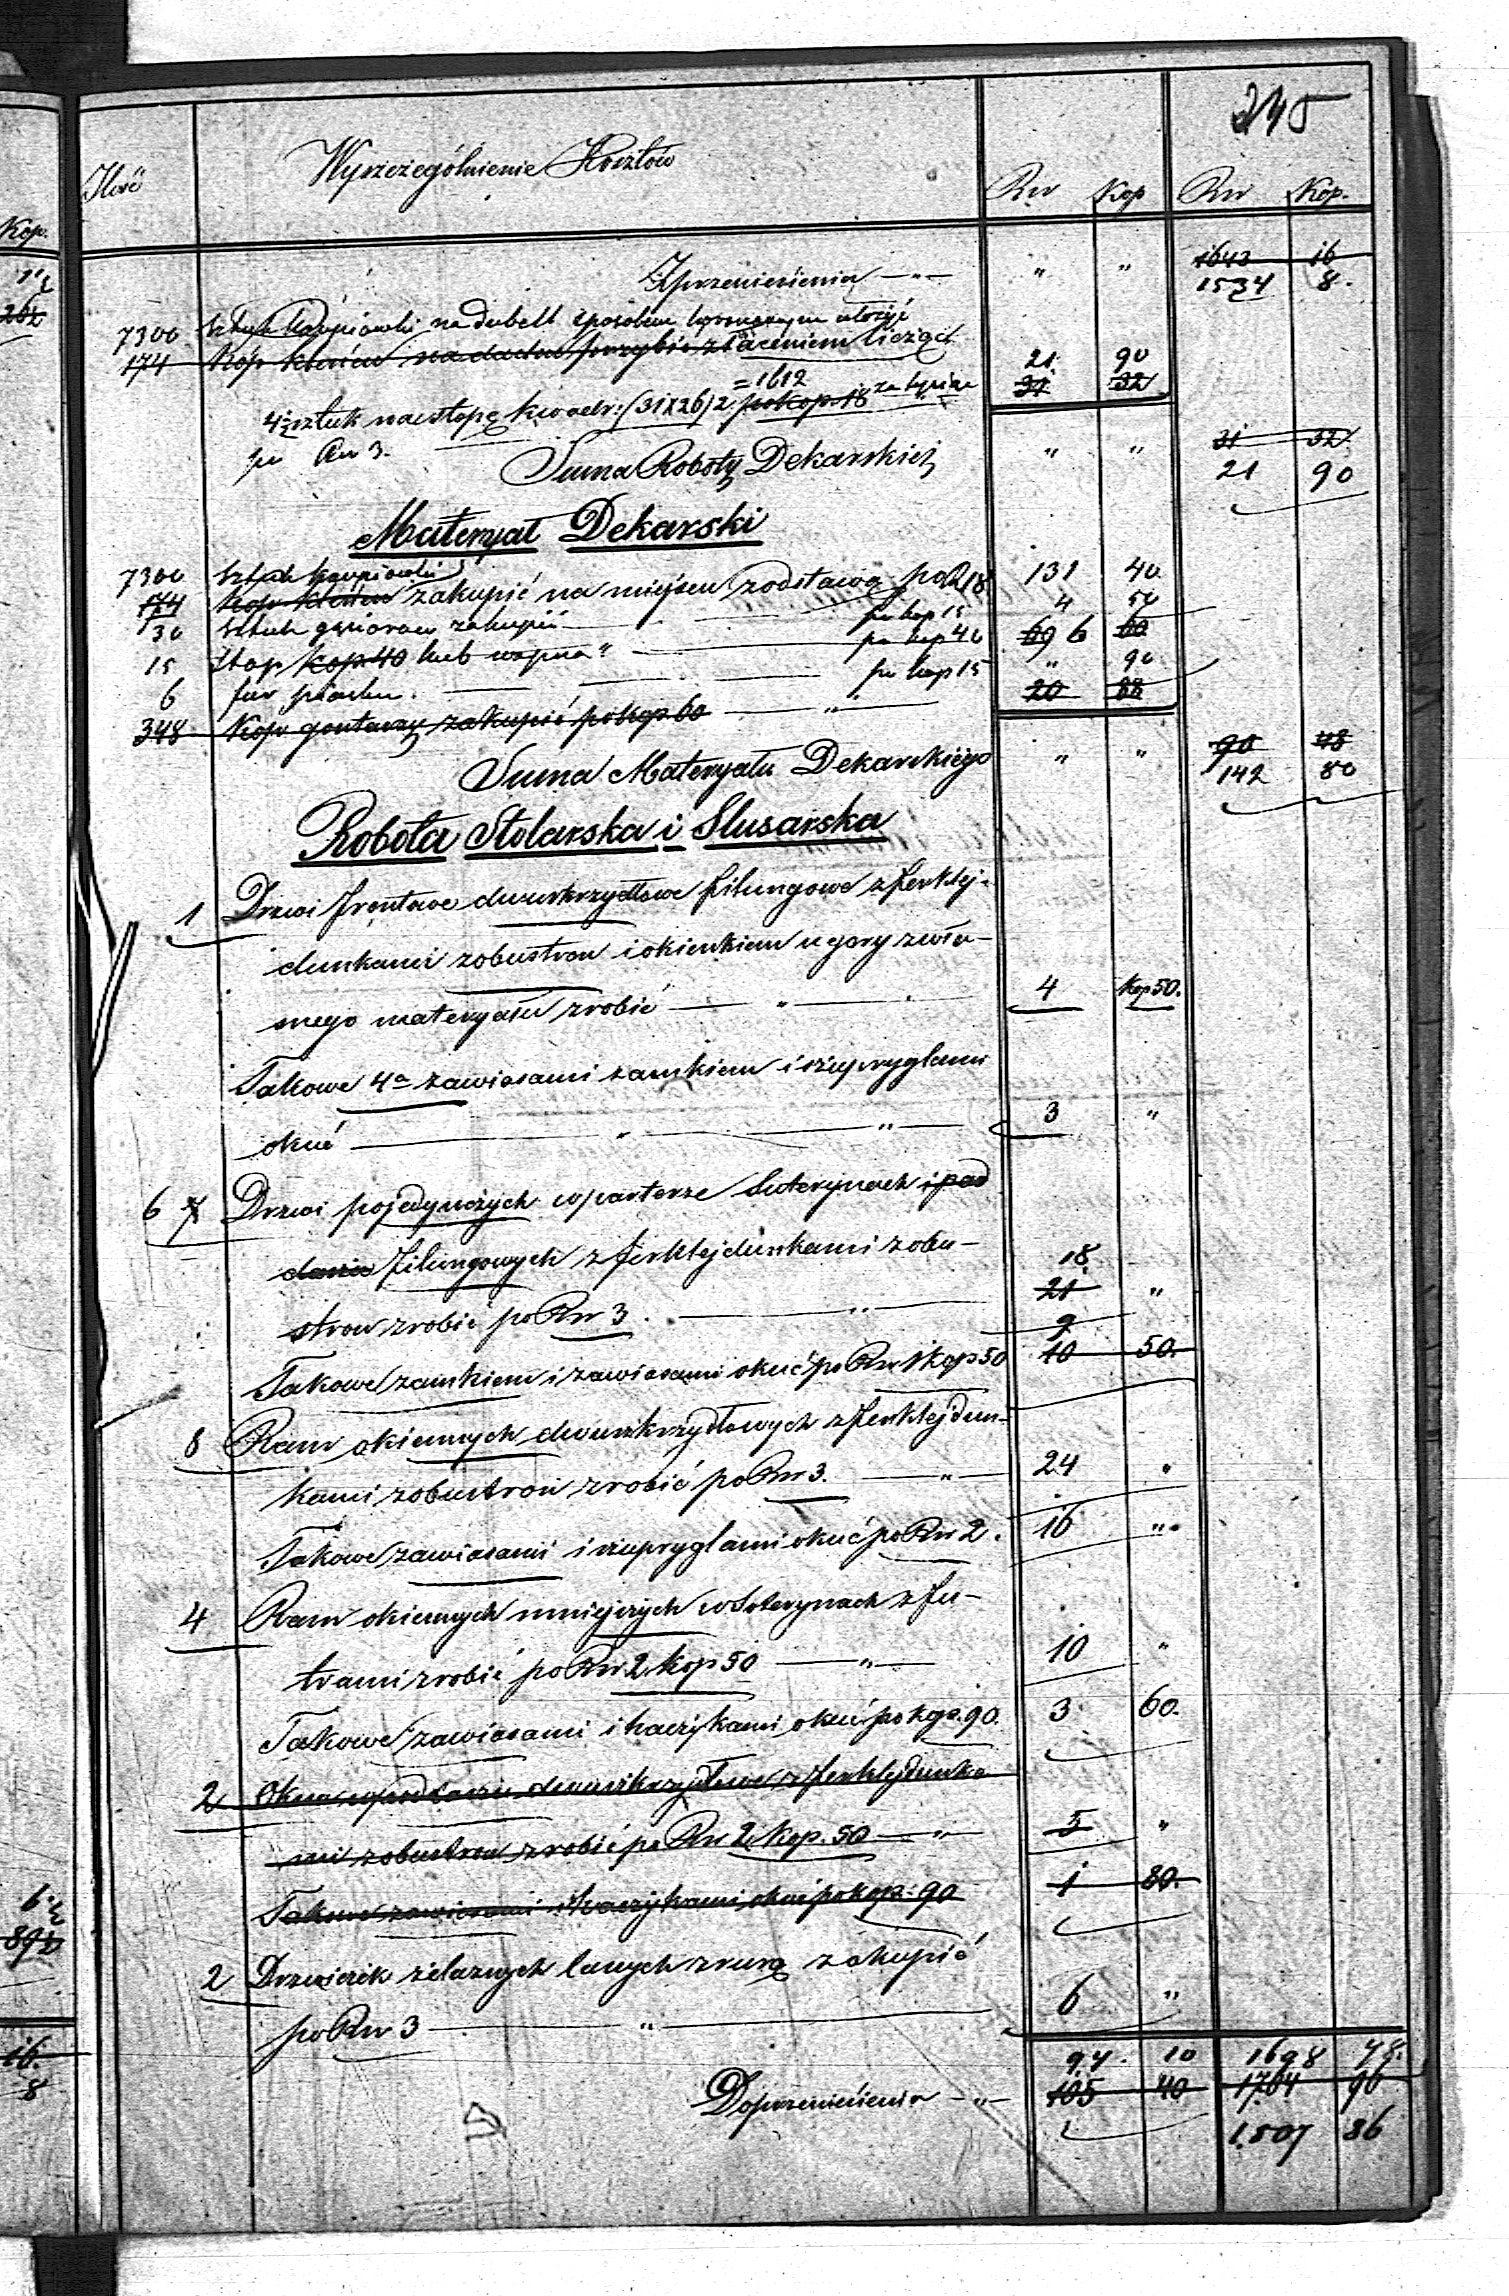 245
Ilość Wyszczególnienie Kosztów Rsr Kop Rsr Kop.
Kop.
Zprzeniesienia — " — " " 1643 16
1534 8.
7300 Sztuk karpiówki na dubelt sposobem ułożyć
174 Kop kleńcu na dachu przybić złaceniem licząc 21 90
31 32
4½ sztuk na stopę kwadr: (31×26)2 =1612 po kop. 18 za tysiąc
po Rsr 3.
Suma Roboty Dekarskiej " " 31 32
21 90
Materyał Dekarski
7300 Sztuk karpiówki 131 40
174 Kop kleńcu zakupić na miejscu zodstawą po R 18
30 Sztuk gąsiorów zakupić — po kop 15 4 50
15 Stop kop 40 lub wapna " — po kop 40 69 6 60
6 fur piasku. — po kop 15 " 90
348 Kop gontarzy zakupić po kop 60 — " 20 88
Suma Materyału Dekarskiego " " 90 48
142 80
Robota Stolarska i Slusarska
1 Drzwi frontowe dwuskrzydłowe filungowe z ferklej-
dunkami zobustron i okienkiem u góry zwła-
snego materyału zrobić — " — 4 kop 50.
Takowe 4a zawiasami zamkiem i szupryglami
okuć — " — " — 3 "
6 7 Drzwi pojedynczych w parterze Suterynach i pod
dasze filungowych z ferklejdunkami zobu- 18
stron zrobić po Rsr 3. — " — 21 "
9
Takowe zamkiem i zawiasami okuć po Rsr 1 kop 50 10 50.
8 Ram okiennych dwuskrzydłowych z ferklejdun-
kami zobustron zrobić po Rsr 3. — " — 24 "
Takowe zawiasami i szupryglami okuć po Rsr 2. 16 "
4 Ram okiennych mniejszych w Soterynach z fu-
trami zrobić po Rsr 2 kop 50 — " — 10 "
Takowe zawiasami i haczykami okuć po kop. 90. 3 60.
2 Okna dwuskrzydłowe z ferklejdunka
mi zobustron zrobić po Rsr 2 kop. 50 — " — 5 "
Takowe zawiasami i haczykami okuć po kop: 90 1 80.
2 Drzwiczek żelaznych lanych z rurą zakupić
po Rsr 3 — " — 6 "
94. 10 1698 78.
Doprzeniesienia — " — 105 40 1764 96
1.507 86